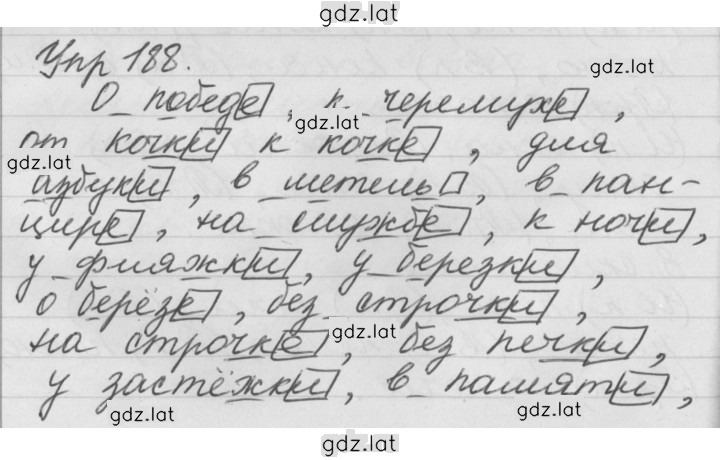 gdz.lat
Упр 188.
gdz.lat
О победе, к черемухе,
gdz.lat
от кочки к кочке, для
gdz.lat
азбуки, в метель, в пан-
цире, на службе, к ночи,
у фляжки, у березки,
о берёзе, без строчки,
gdz.lat
на строчке, без печки,
у застёжки, в памяти,
gdz.lat gdz.lat
gdz.lat